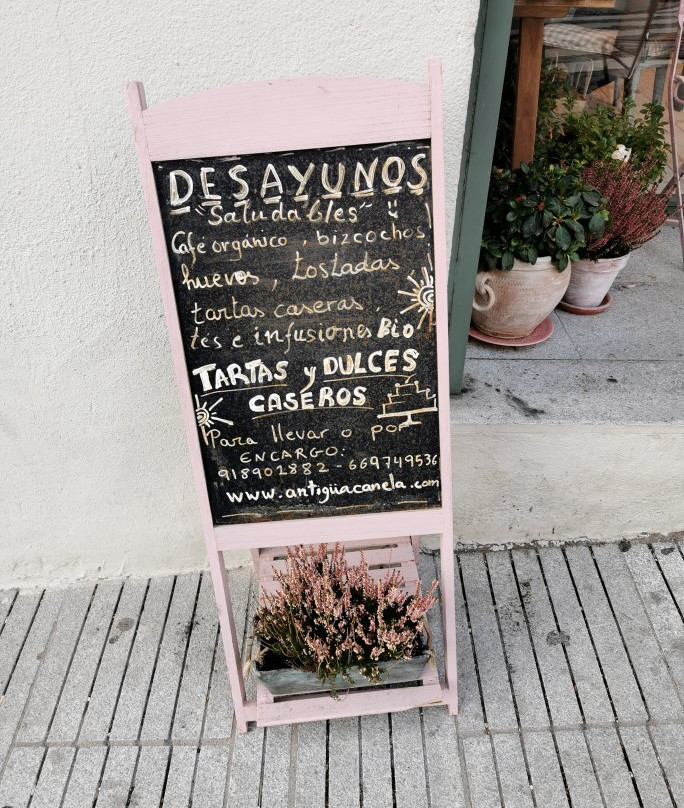 DESAYUNOS
"Saludables"
Café orgánico, bizcochos
huevos, tostadas
tartas caseras
tés e infusiones Bio
TARTAS y DULCES
CASEROS
Para llevar o por
ENCARGO:
918902882 - 669749536
www.antigüacanela.com